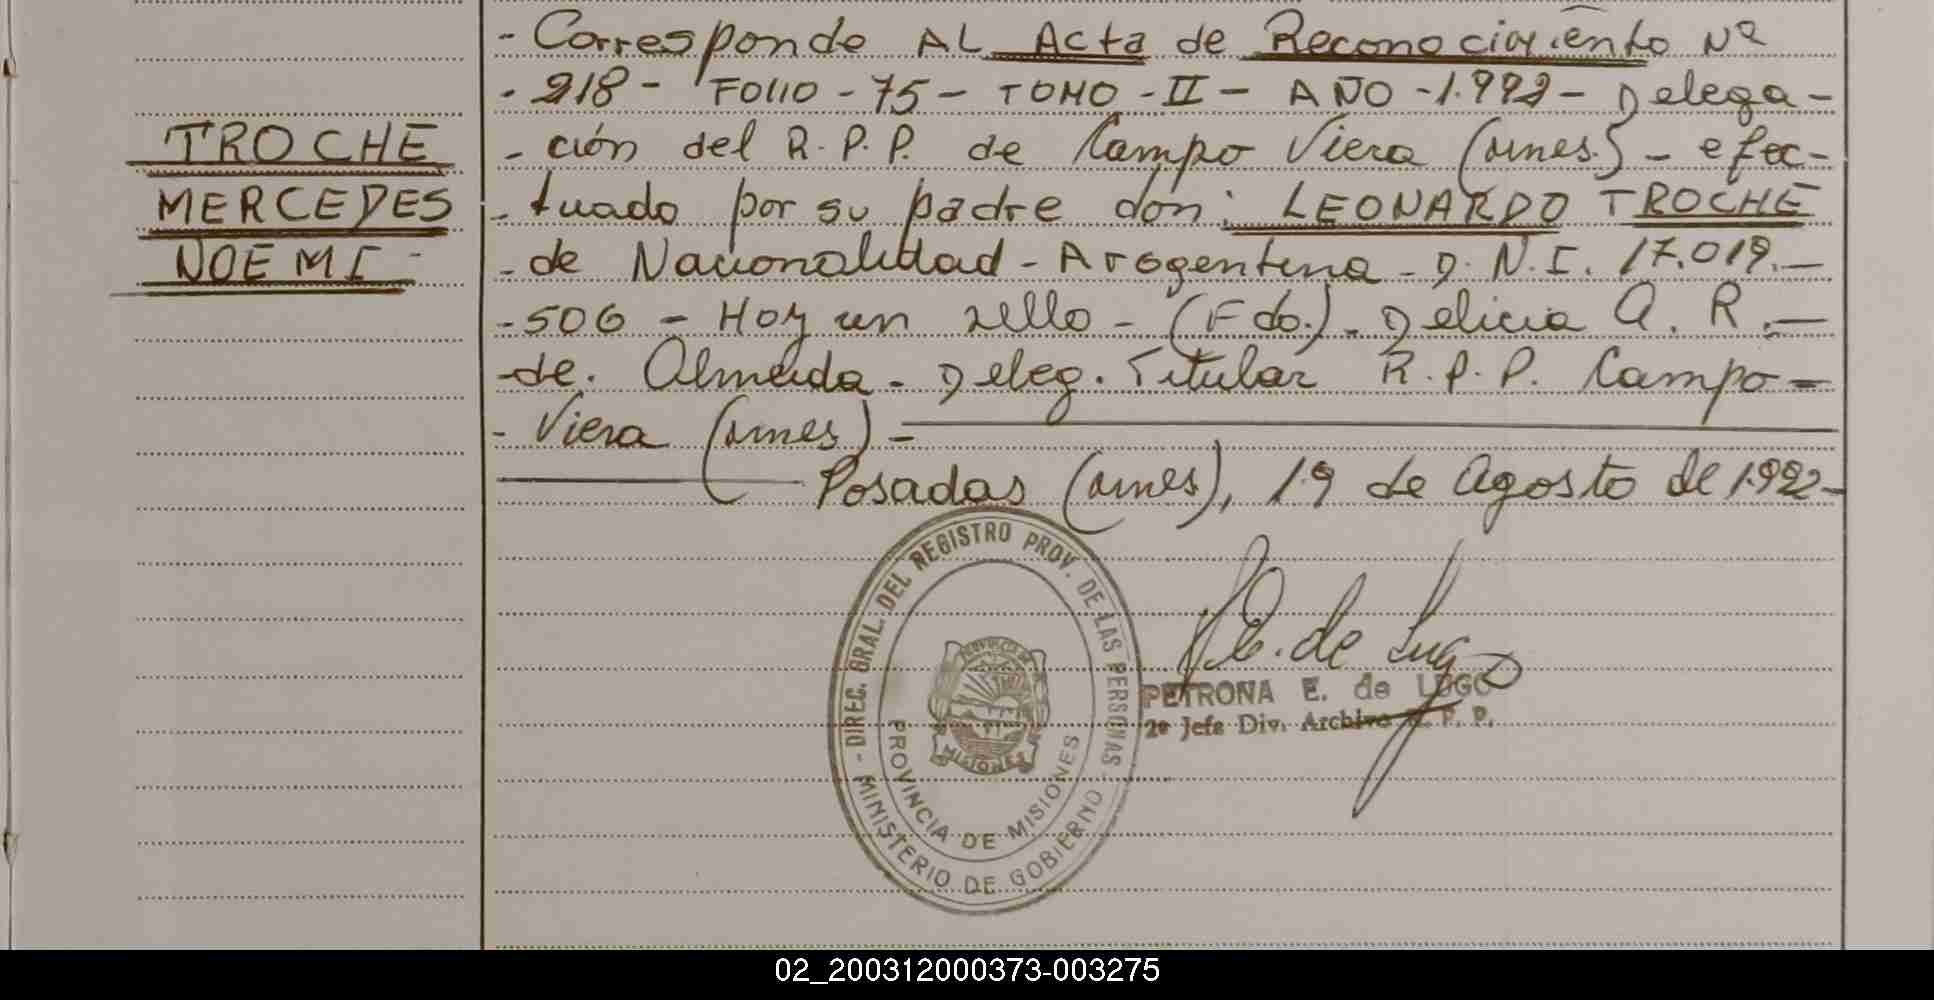 TROCHE
MERCEDES
NOEMI -
- Corresponde AL Acta de Reconocimiento Nº
- 218 - FOLIO - 75 - TOMO - II - AÑO - 1.992 - Delega -
- ción del R.P.P. de Campo Viera (mnes.) - efec -
- tuado por su padre don: LEONARDO TROCHE
- de Nacionalidad - Arogentina - D.N.I. 17.019. -
- 506 - Hoy un sello - (Fdo.) - Delicia A. R. -
- de. Almeida - Deleg. Titular R.P.P. Campo -
- Viera (mnes) -
Posadas (mnes), 19 de Agosto de 1.992 -
- DIREC. GRAL. DEL REGISTRO PROV. DE LAS PERSONAS -
MINISTERIO DE GOBIERNO
PROVINCIA DE MISIONES
MISIONES
P. E. de Lugo
PETRONA E. de LUGO
2º Jefe Div. Archivo R. P. P.
02_200312000373-003275